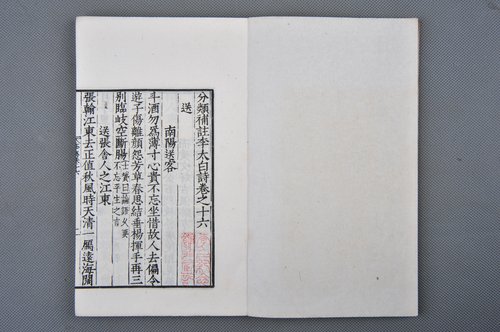 分類補註李太白詩卷之十六
送
南陽送客
斗酒勿爲薄寸心貴不忘坐惜故人去偏令
遊子傷離顏怨芳草春思結垂楊揮手再三
別臨岐空斷腸士贇曰論語久要不忘平生之言
送張舍人之江東
張翰江東去正值秋風時天清一鴈遠海闊